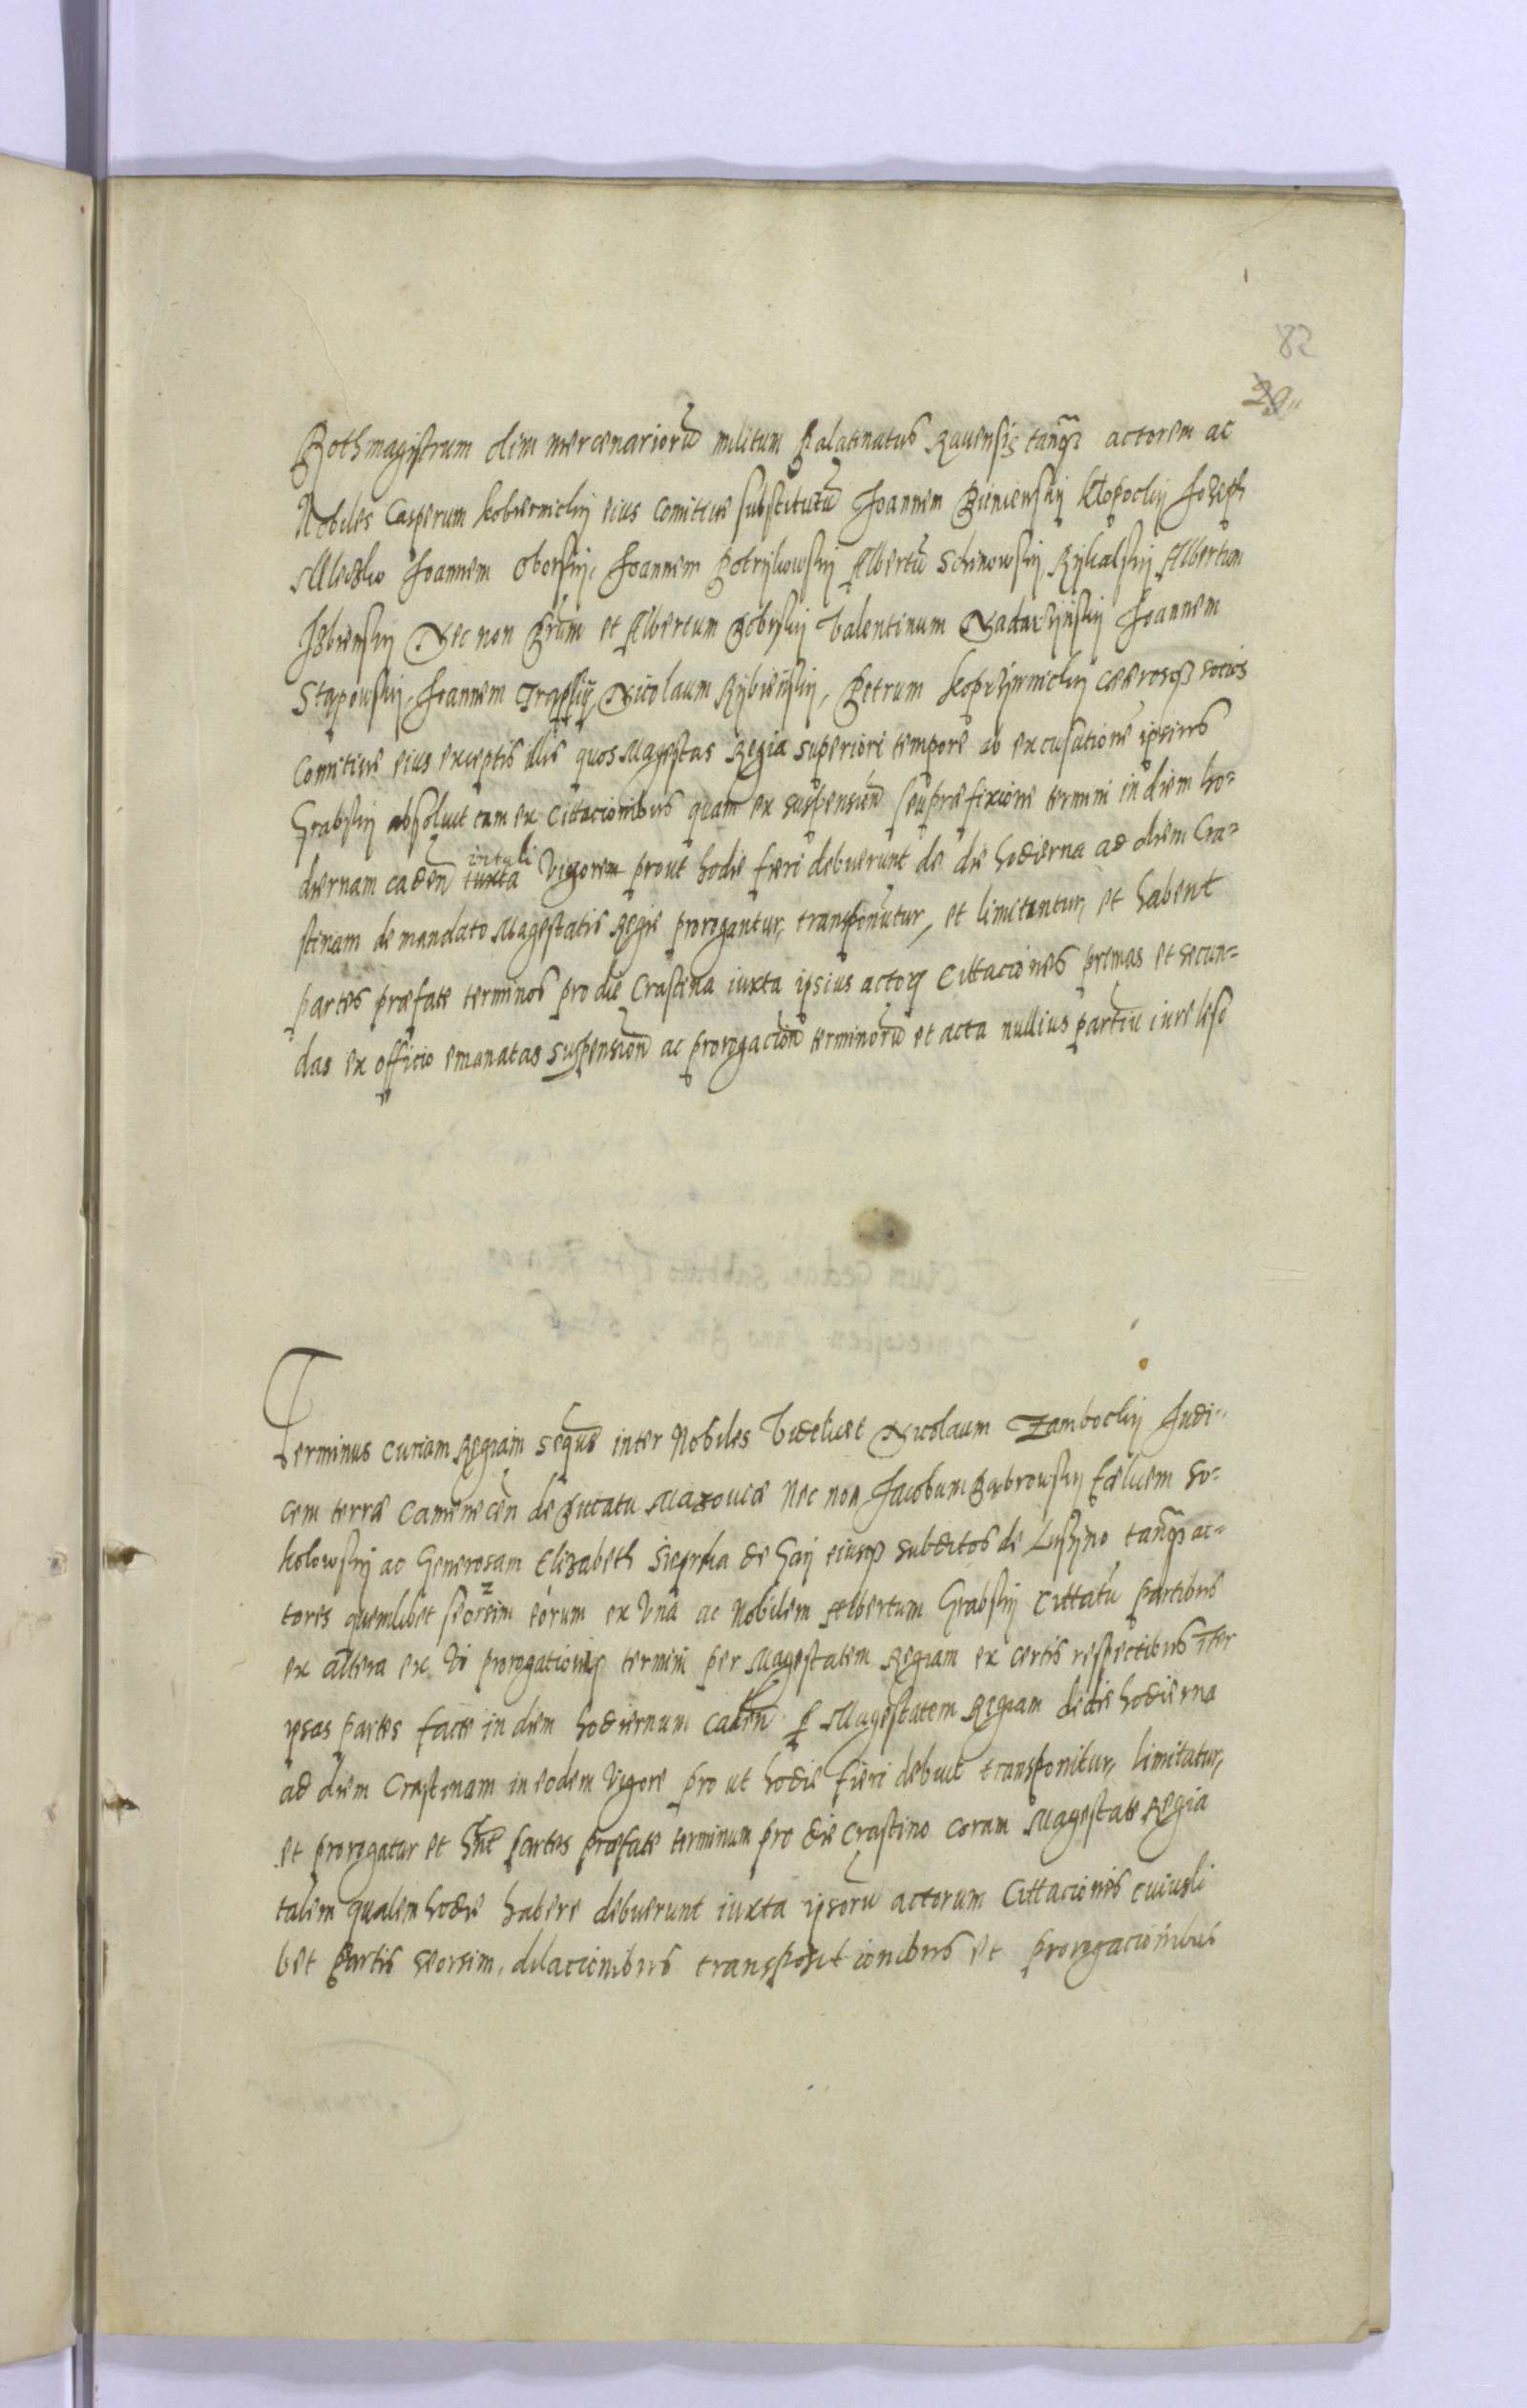 82
29
Rothmagistrum olim mercenarioru militum Palatinatus Rauensis tanq actorem ac
Nobiles Casperum kobiernicky eius Comitiue substitutu Joannem Bieniewsky Klopocky Jozeph
Mleczko Joannem Oborsky, Joannem Potrykowsky Albertu Schinowsky Rykalsky Albertum
Izbiensky Nec non et Albertum Zobrsky Valentinum Nadarzynsky Joannem
Stapowsky, Joannem Nicolaum Rybiensky, Petrum koprzywnicky cæterosq socios
Comitiue eius exceptis illis quos Magestas Regia superiori tempore ab excusatione ipsius
Grabsky absoluit tam ex Cittacionibus quam ex suspensien seu præfixione termini in diem ho=
diernam caden in tali iuxta Vigorem prout hodie fieri debuerunt de die hodierna ad diem Cra=
stinam de mandato Magestatis Regie prorogantur, transponutur, et limitantur, et habent
partes præfate terminos pro die Crastina iuxta ipsius actor Cittaciones primas et secun=
das ex officio emanatas suspension ac prorogacion terminoru et acta nullius partiu iure leso
Terminus Curiam Regiam seque inter Nobiles Videlicet Nicolaum Zambocky Judi=
cem terræ Camenecen de Ducatu Mazouiæ Nec non Jacobum Zabrowsky Fælicem So=
kolowsky ac Generosam Elizabeth de Gay eiusq subditos de Luszyno tanq ac=
tores quemlibet seorsim eorum ex Vna ac Nobilem Albertum Grabsky Cittatu partibus
ex altera ex Vi prorogationis termini per Magestatem Regiam ex certis respectibus iter
ipsas partes facte in diem hodiernum caden p Magestatem Regiam de die hodierna
ad diem Crastinam in eodem Vigore pro ut hodie fieri debuit transponitur, limitatur,
et prorogatur et hnt partes præfate terminum pro die Crastino Coram Magestate Regia
talem qualem hodie habere debuerunt iuxta ipsoru actorum Cittacionis cuiusli
bet partis seorsim, dilacionibus transpositionibus et prorogacionibus